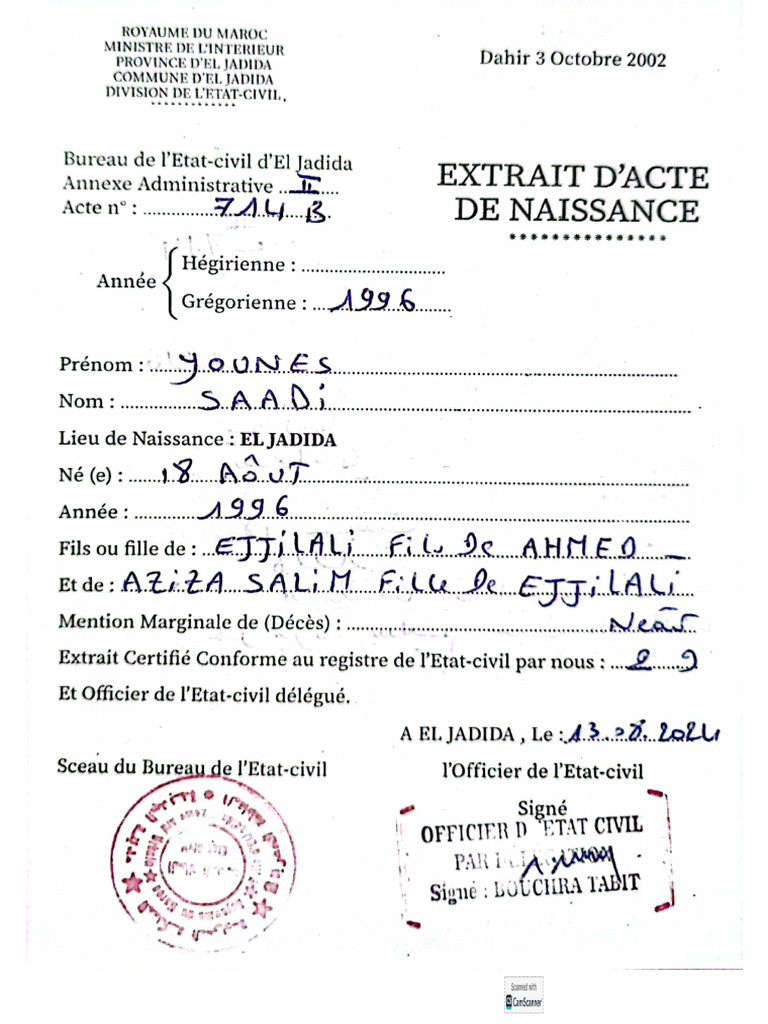 ROYAUME DU MAROC
MINISTRE DE L'INTERIEUR
PROVINCE D'EL JADIDA
COMMUNE D'EL JADIDA
DIVISION DE L'ETAT-CIVIL,
Dahir 3 Octobre 2002
Bureau de l'Etat-civil d'El Jadida
Annexe Administrative ..II....
Acte n° : ............714 B
EXTRAIT D'ACTE
DE NAISSANCE
***************
Année
Hégirienne : ...........................
Grégorienne : ....1996......
Prénom : ......YOUNES
Nom : ............SAADi
Lieu de Naissance : EL JADIDA
Né (e) : ......18 AÔUT
Année : ..........1996
Fils ou fille de : ..EJJiLALi FiLs De AHMED _
Et de : AZiZA SALiM FiLLe De EJJiLALi
Mention Marginale de (Décès) : ................Neânt
Extrait Certifié Conforme au registre de l'Etat-civil par nous : ..........
Et Officier de l'Etat-civil délégué.
A EL JADIDA , Le : 13 2024
Sceau du Bureau de l'Etat-civil
l'Officier de l'Etat-civil
Signé
OFFICIER D 'ETAT CIVIL
PAR
Signé : BOUCHRA TABIT
Scanned with
CamScanner